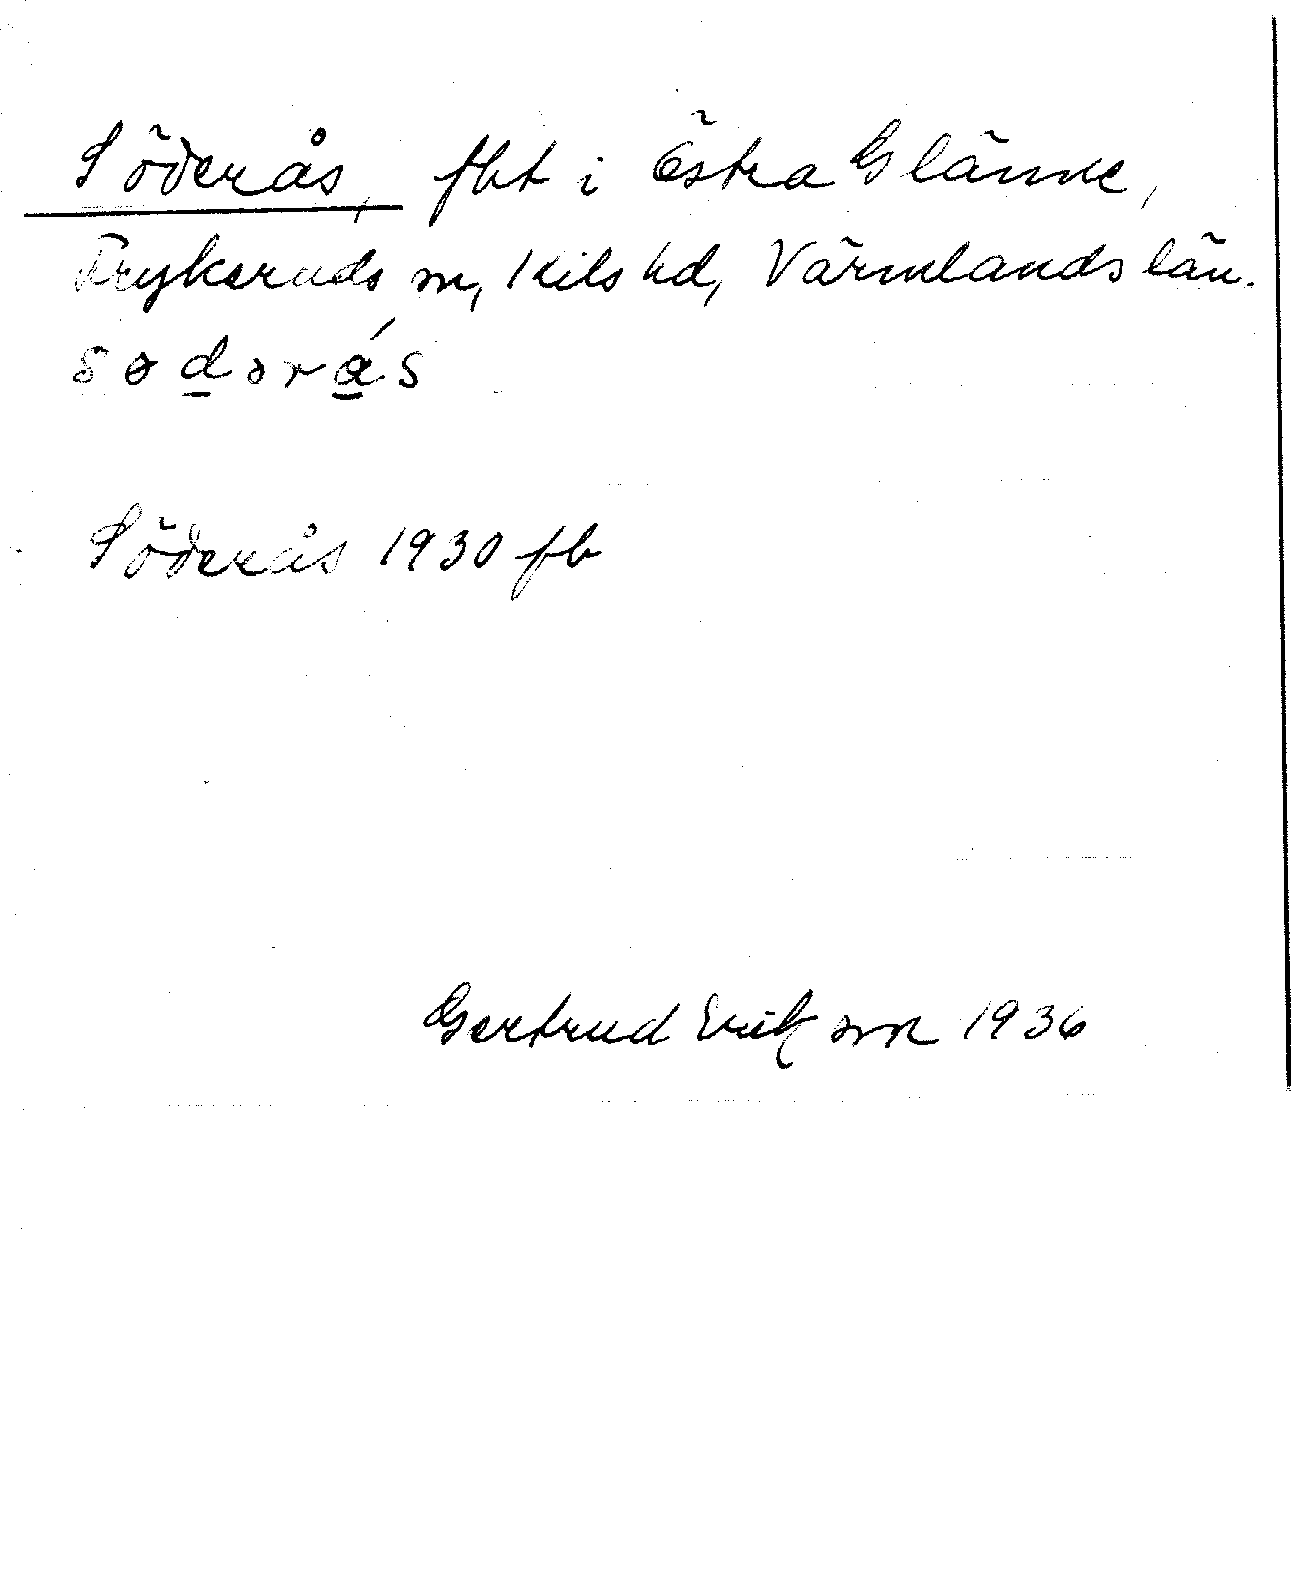 Söderås, fbt i Östra Glänne,
Frykeruds sn, Kils hd, Värmlands län.
Söderås 1930 fb
Gertrud Eriksson 1936